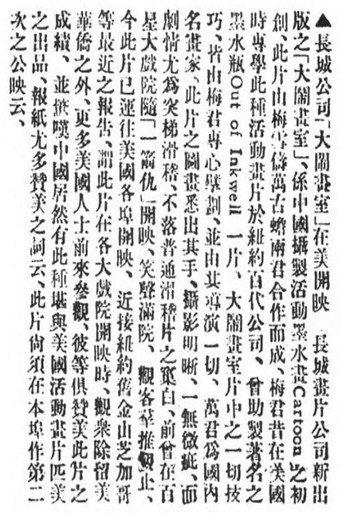 ▲長城公司「大鬧畫室」在美開映　長城畫片公司新出
版之「大鬧畫室」、係中國攝製活動墨水畫Cartoon」之初
創、此片由梅雪儔萬古蟾兩君合作而成、梅君昔在美國
時專學此種活動畫片於紐約百代公司、曾助製著名之
墨水瓶Out of Inkwell 一片、大鬧畫室片中之一切技
巧、皆由梅君專心擘劃、並由其導演一切、萬君爲國內
名畫家、此片之圖畫悉出其手、攝影明晰、一無微疵、而
劇情尤爲突梯滑稽、不落普通滑稽片之窠臼、前曾在百
星大戲院隨「一箭仇」開映、笑聲滿院、觀客羣推觀止、
今此片已運往美國各埠開映、近接紐約舊金山芝加哥
等最近之報告、謂此片在各大戲院開映時、觀衆除留美
華僑之外、更多美國人士前來參觀、彼等俱贊美此片之
成績、並擠嘆中國居然有此種堪與美國活動畫片匹美
之出品、報紙尤多贊美之詞云、此片尙須在本埠作第二
次之公映云、